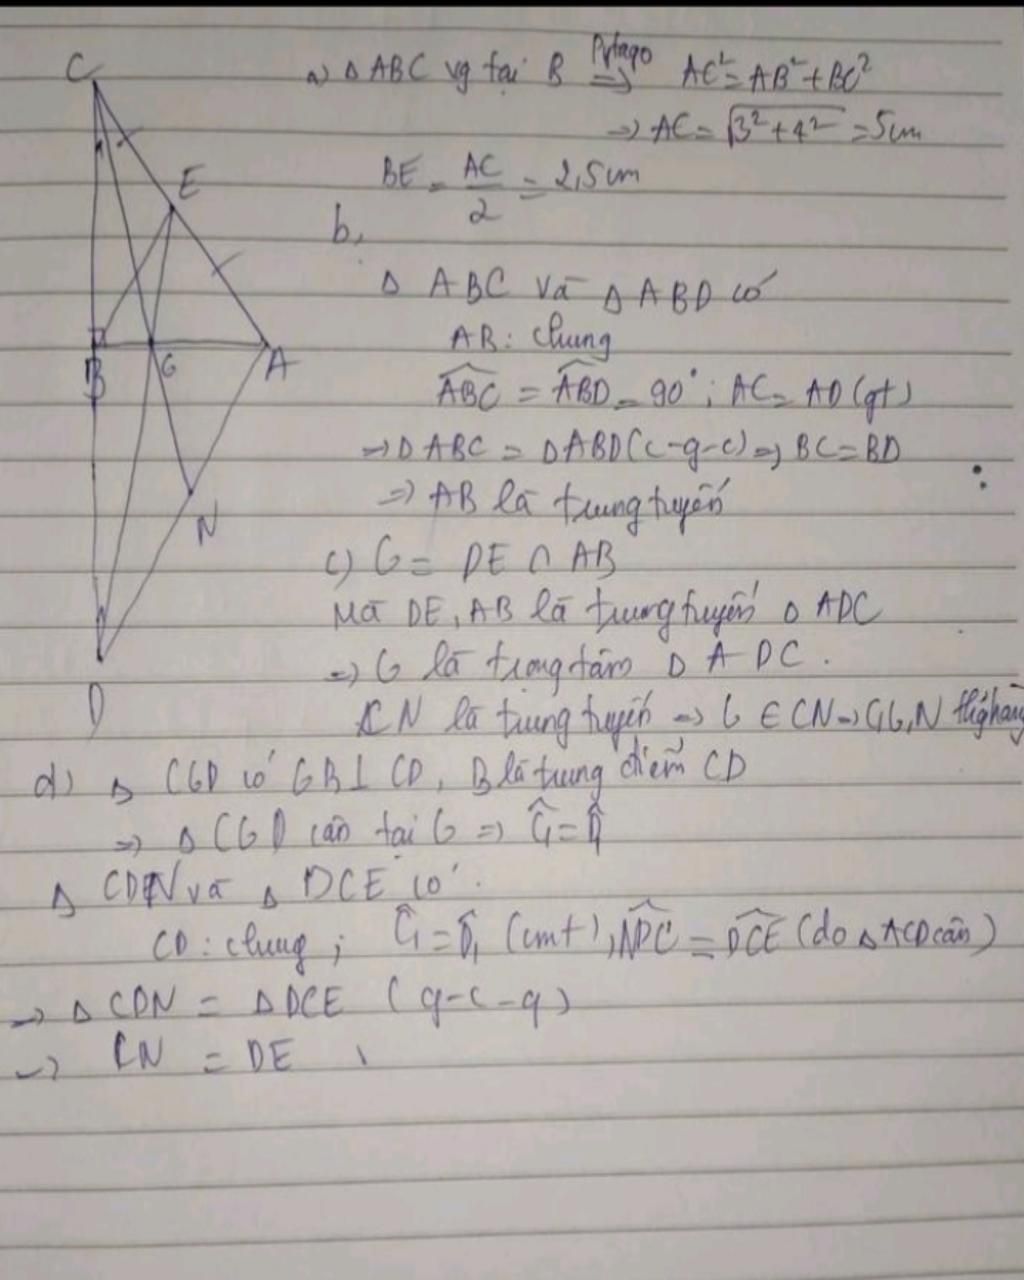 C
E
B
G
A
N
D
a) Δ ABC vg tại B Pytago => AC² = AB² + BC²
=> AC = √3² + 4² = 5cm
BE = AC/2 = 2,5cm
b,
Δ ABC và Δ ABD có
AB: chung
ABC = ABD = 90°; AC = AD (gt)
=> Δ ABC = Δ ABD (c-g-c) => BC = BD
=> AB là trung tuyến
c) G = DE ∩ AB
Mà DE, AB là trung tuyến Δ ADC
=> G là trọng tâm Δ ADC.
CN là trung tuyến => G ∈ CN => C,G,N thẳng hàng
d) Δ CGD có GB ⊥ CD, B là trung điểm CD
=> Δ CGD cân tại G => Ĉ₁ = D̂₁
Δ CDN và Δ DCE có:
CD: chung; Ĉ₁ = D̂₁ (cmt), NDC = DCE (do Δ ACD cân)
=> Δ CDN = Δ DCE (g-c-g)
=> CN = DE